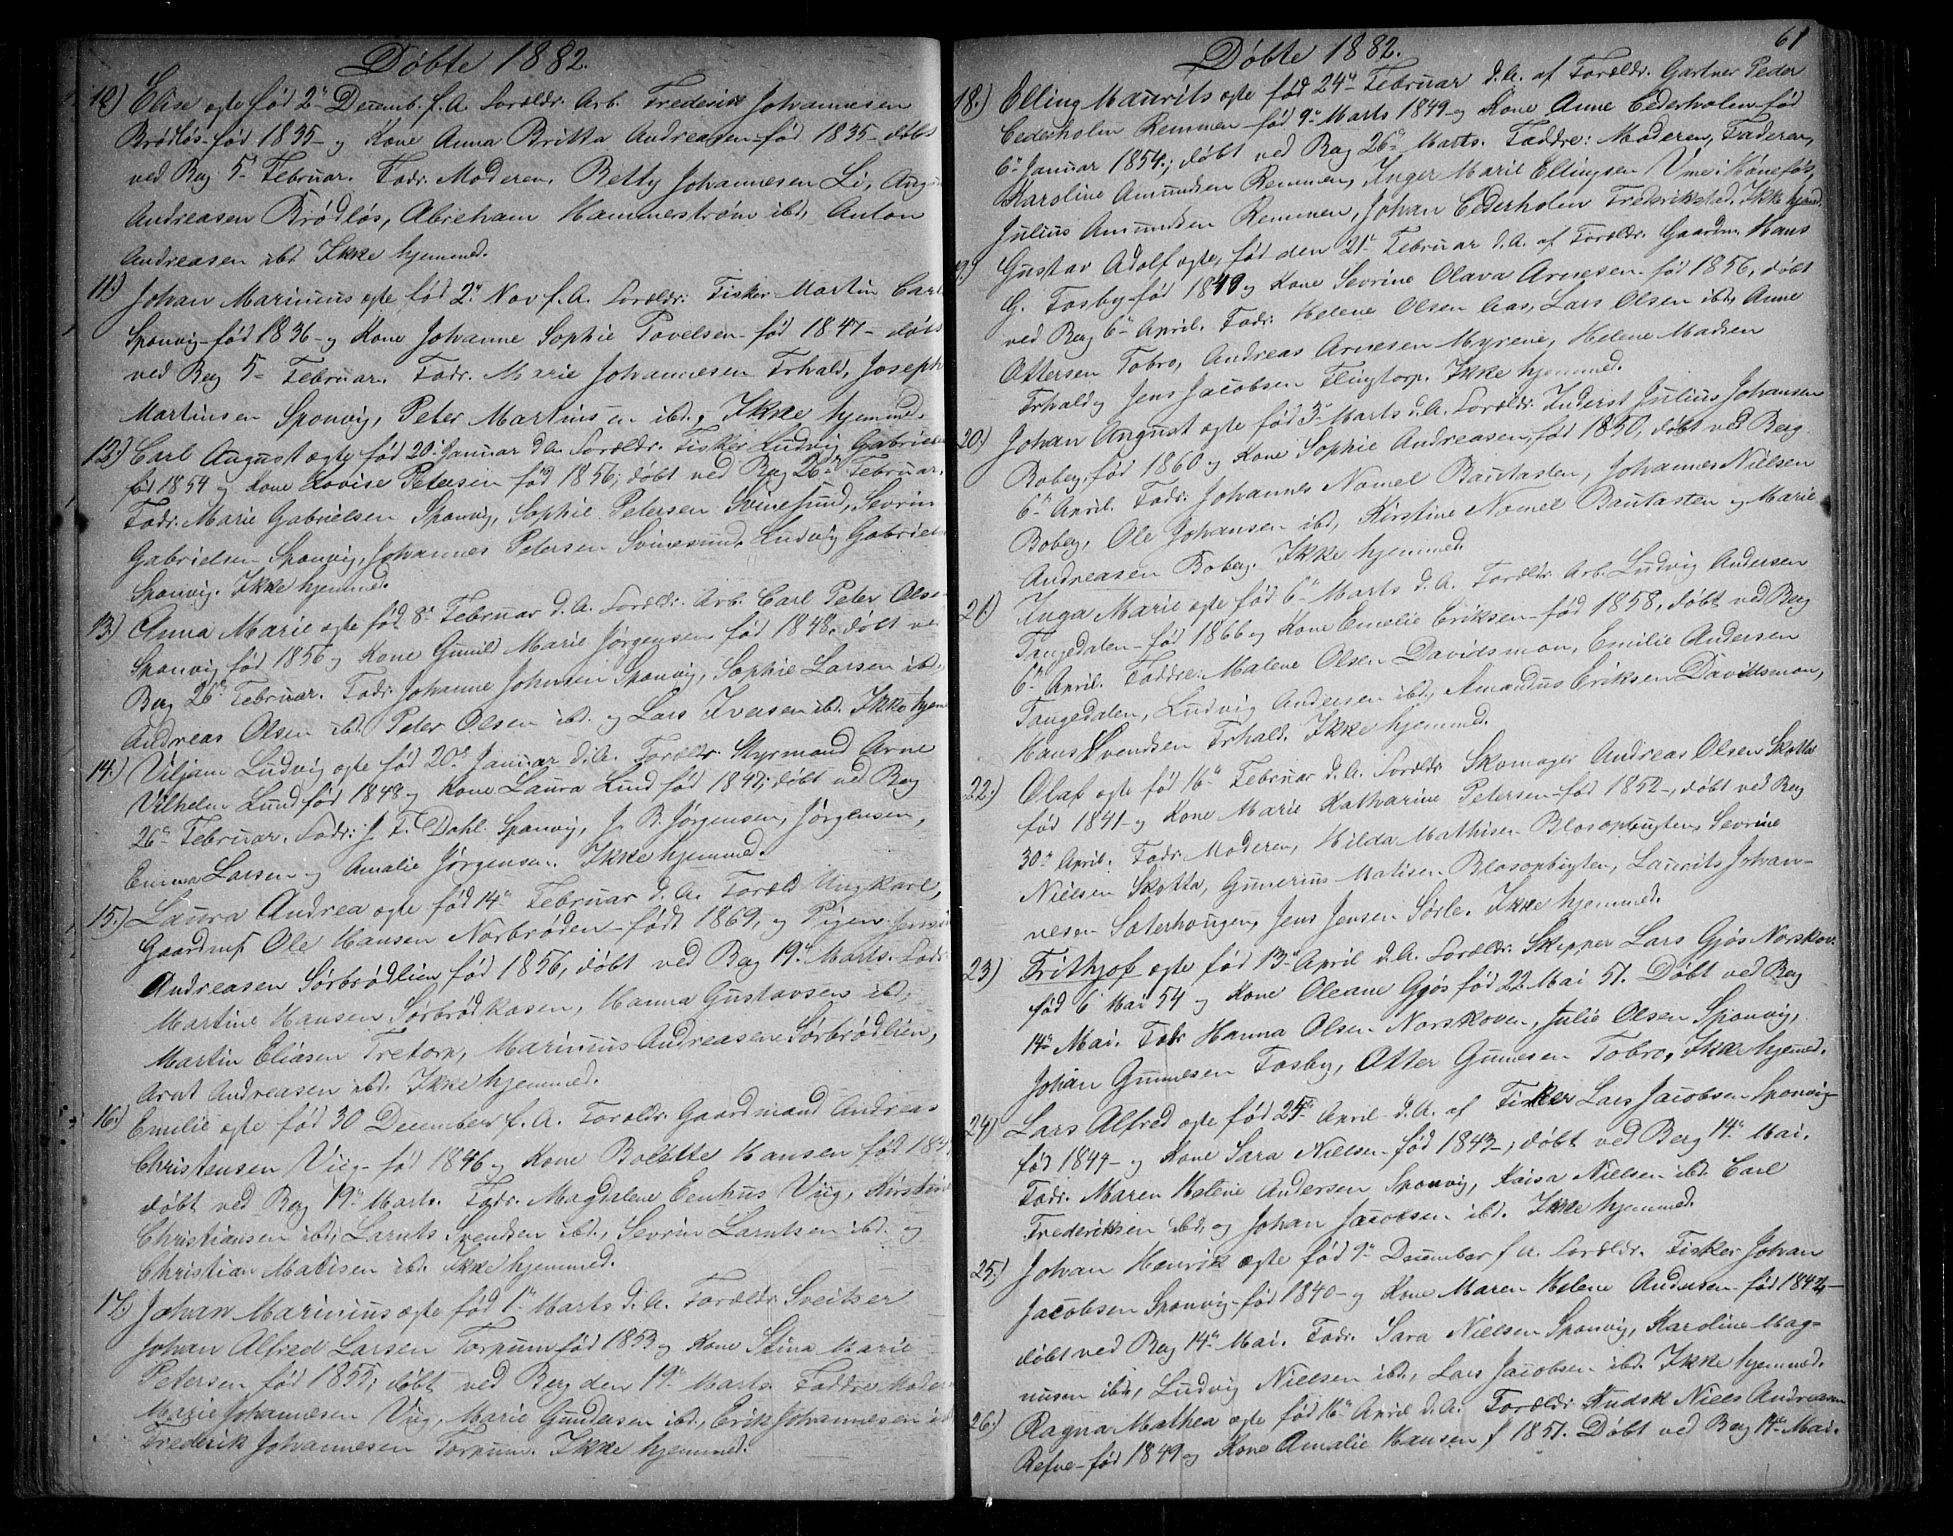 Döbte 1882.
10.) Elise egte född 2den Decemb. f. A. Foreldr. Arb. Frederik Johannesen
Brödlös född 1835 – og Kone Anna Britta Andreasen född 1835 – döbt
ved Berg 5te Februar. Fadr. Moderen, Betty Johannesen Li, August
Andreasen Brödlös, Abraham Hammerström ibd, Anton
Andreasen ibd. Ikke hjemmed.
11.) Johan Marinius egte född 2den Nov. f. A. Foreldr. Fisker Martin Carls
Sponvig född 1836 – og Kone Johanne Sophie Povelsen född 1841 – döbt
ved Berg 5te Februar. Fadr. Marie Johannesen Erhald, Joseph
Martinsen Sponvig, Peter Martinsen ibd., Ikke hjemmed.
12.) Carl August egte född 20de Januar d. A. Foreldr. Fisker Ludvig Gabrielsen
född 1854 og Kone Lovise Petersen född 1856; döbt ved Berg 26de Februar.
Fadr. Marie Gabrielsen Sponvig, Sophie Petersen Svinesund, Sevrin
Gabrielsen Sponvig, Johannes Petersen Svinesund, Ludvig Gabrielsen
Sponvig. Ikke hjemmed.
13.) Anna Marie egte född 8de Februar d. A. Foreldr. Arb. Carl Peter Olsen
Sponvig född 1856 og Kone Gunild Marie Jörgensen född 1848; döbt ved
Berg 26de Februar. Fadr. Johanne Johnsen Sponvig, Sophie Larsen ibd.
Andreas Olsen ibd. Peter Olsen ibd. og Lars Iversen ibd. Ikke hjem
14.) Viljam Ludvig egte född 20de Januar d. A. Foreldr. Styrmand Arne
Vilhelm Lund född 1848 og Kone Laura Lund född 1847; döbt ved Berg
26de Februar. Fadr. J. F. Dahl Sponvig, J. B. Jörgensen, Jörgensen,
Emma Larsen og Amalie Jörgensen. Ikke hjemmed.
15.) Laura Andrea egte född 14de Februar d. A. Foreld Ungkarl,
Gaardmf. Ole Hansen Norbröden – födt 1869, og Pigen
Andreasen Sörbrödlien född 1856, döbt ved Berg 19de Marts. Fadr
Martine Hansen Sörbrödkasen, Hanna Gustavsen ibd.
Martin Eliasen Tretorp, Marinius Andreasen Sörbrödlien,
Arnt Andreasen ibd. Ikke hjemmed.
16.) Emilie egte född 30 December f. A. Foreldr. Gaardmand Andreas
Christensen Viig – född 1846 og Kone Bolette Hansen född
döbt ved Berg 19de Marts. Fadr. Magdalene Eenhus Viig, Kirstine
Christiansen ibd, Larnts Svendsen ibd., Sevrin Larntsen ibd. og
Christian Matisen ibd. Ikke hjemmed.
17.) Johan Marinius egte född 1ste Marts d. A. Foreldr Sveitser
Johan Alfred Larsen Torpum född 1853 og Kone Stina Marie
Petersen född 1855; döbt ved Berg den 19de Marts. Faddre Moder
Marie Johannesen Viig, Marie Gundersen ibd., Erik Johannesen ibd
Frederik Johannesen Torpum. Ikke hjemmed.
61
Döbte 1882.
18.) Elling Maurits egte född 24de Februar d. A. af Foreldr. Gartner Peder
Cederholm Remmen – född 9de Marts 1849 – og Kone Anne Cederholm född
6te Januar 1854; döbt ved Berg 26de Marts. Faddre: Moderen, Faderen,
Karoline Amundsen Remmen, Inger Marie Ellingsen Vme i Hönefös,
Julius Amundsen Remmen, Johan Cederholm Fredrikshed. Ikke hjemd.
19.) Gustav Adolf egte, född den 21de Februar d. A. af Foreldr. Gaardm. Hans
G. Fosby född 1849 og Kone Sevrine Olava Arnesen född 1856, döbt
ved Berg 6te April. Fadr. Helene Olsen Aas, Lars Olsen ibd, Anne
Ottersen Tobro, Andreas Arnesen Myrene, Helene Madsen
Erhald og Jens Jacobsen Flugtorp. Ikke hjemmed.
20.) Johan August egte född 3de Marts d. A. Foreldr. Inderst Julius Johansen
Boberg, född 1860 og Kone Sophie Andreasen, född 1850, döbt ved Berg
6te April. Fadr. Johannes Nomel Bautasten, Johannes Nielsen
Boberg, Ole Johansen ibd, Kirstine Nomel Bautasten og Marie
Andreasen Boberg. Ikke hjemmed.
21.) Inga Marie egte född 6te Marts d. A. Foreldr. Arb. Ludvig Andersen
Tangedalen – född 1866 og Kone Emelie Eriksen – född 1858, döbt ved Berg
6te April. Faddre: Malene Olsen Davidsmon, Emilie Andersen
Tangedalen, Ludvig Andersen ibd, Amandus Eriksen Davidsmon,
Hans Svendsen Erhald. Ikke hjemmed.
22.) Olaf egte född 16de Februar d. A. Foreldr Skomager Andreas Olsen Skotta
född 1841 – og Kone Marie Katharine Petersen – född 1852 –, döbt ved Berg
30de April. Fadr. Moderen, Hilda Mathisen Blosopbugten, Sevrine
Nielsen Skotta, Gunerius Matisen Blosopbugten, Laurits Johan-
nesen Saterhougen, Jens Jensen Sörle. Ikke hjemmed.
23.) Frithjof egte född 13de April d. A. Foreldr. Skipper Lars Gjös Norskov.
född 6 Mai 54 og Kone Oleane Gjös född 22. Mai 51. Döbt ved Berg
14de Mai. Fadr Hanna Olsen Norskoven, Julie Olsen Sponvig,
Johan Gunnesen Fosby, Otter Gunnesen Tobro. Ikke hjemed.
24.) Lars Alfred egte född 25de April d. A. af Fisker Lars Jacobsen Sponvig
född 1844 – og Kone Sara Nielsen – född 1843 –, döbt ved Berg 14de Mai.
Fadr. Maren Helene Andersen Sponvig, Kaisa Nielsen ibd. Carl
Frederiksen ibd, og Johan Jacobsen ibd. Ikke hjemmed.
25.) Johan Henrik egte född 9de December f. A. Foreldr. Fisker Johan
Jacobsen Sponvig född 1840 – og Kone Maren Helene Andersen – född 1842 –
döbt ved Berg 14de Mai. Fadr. Sara Nielsen Sponvig, Karoline Mag-
nusen ibd, Ludvig Nielsen ibd., Lars Jacobsen ibd. Ikke hjemmed.
26.) Ragna Mathea egte född 16de April d. A. Foreldr Kudsk Niels Andreasen
Refne – född 1849 og Kone Amalie Hansen f 1851. Döbt ved Berg 14de Mai.